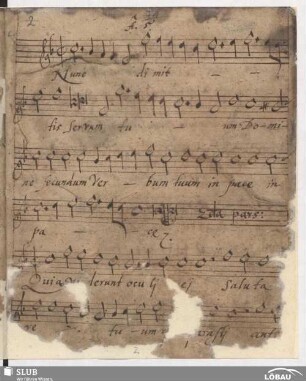 2
Nunc di mit - -
tis servum tu - um Do- mi-
ne secundum Ver - bum tuum in pace in
pa - ce 2da pars:
Quia derunt oculi ei Saluta
re tu- um asti ante
2
SLUB
Wir führen Wissen.
LÖBAU